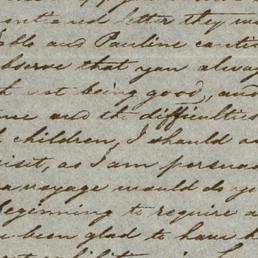 mentioned letter they wa
and Pauline
observe that you alway
not being good, and
and the difficulties
children, I should a
visit, as I am persua
a voyage would do yo
beginning to require a
been glad to have h